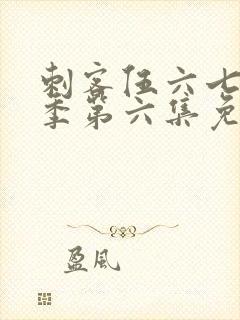 刺客伍六七
季第六集免
盈風